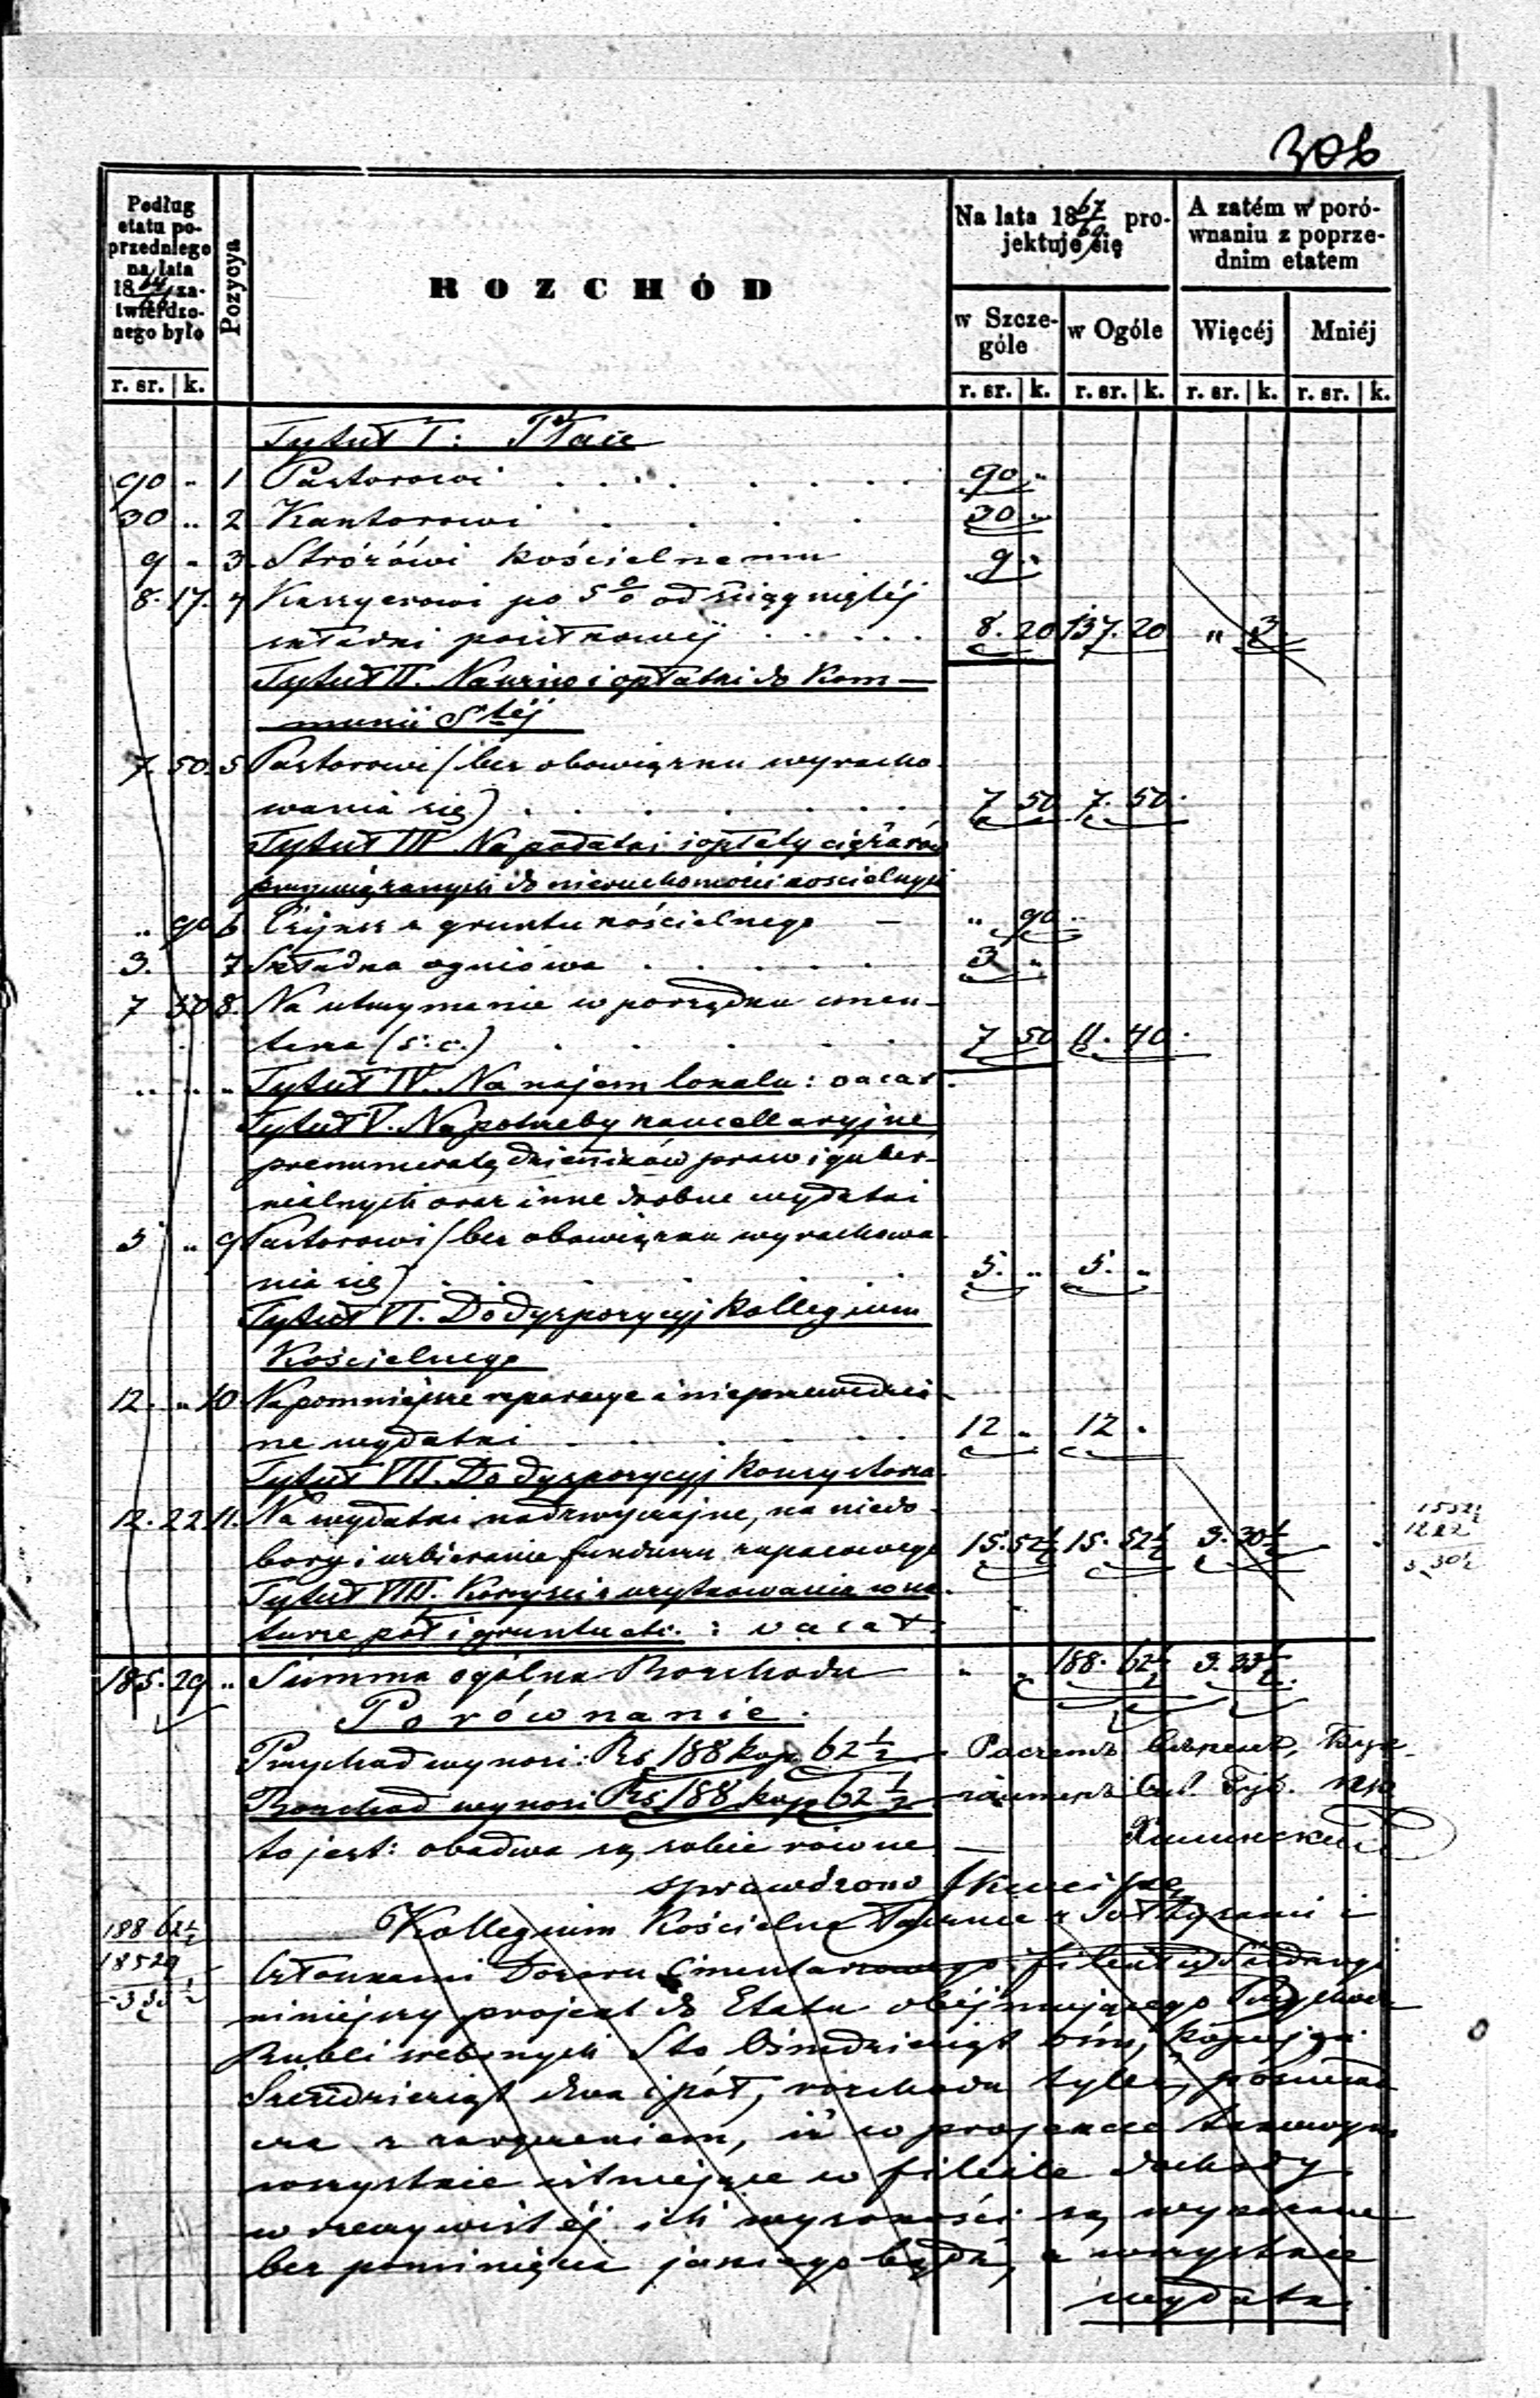 306
Podług etatu poprzedniego na lata 18 64/66 zatwierdzonego było
Pozycya
ROZCHÓD
Na lata 18 67/69 projektuje się
A zatém w porównaniu z poprzednim etatem
w Szczególe
w Ogóle
Więcéj
Mniéj
r. sr. k. r. sr. k. r. sr. k. r. sr. k. r. sr. k.
Tytuł I: Płace
90 " 1 Pastorowi 90 "
30 " 2 Kantorowi 30 "
9 " 3 Stróżowi kościelnemu 9 "
8. 17. 4 Kassyerowi po 5 % od ściągniętéj
składki posiłkowej 8. 20 137. 20 " 3
Tytuł II. Na wino i opłatki do Kom-
munii Stéj
7. 50. 5 Pastorowi (bez obowiązku wyracho-
wania się) 7 50 7. 50
Tytuł III Na podatki i opłaty ciężarów
przywiązanych do nieruchomości kościelnych
" 90 6 Czynsz z gruntu kościelnego — " 90
3. 7 Składka ogniowa 3 "
7 50 8. Na utrzymanie w porządku cmen-
tarza (s. c.) 7 50 11. 40
" " " Tytuł IV. Na najem lokalu: vacat.
Tytuł V. Na potrzeby kancellaryjne,
prenumeratę dzienników praw i guber-
nialnych oraz inne drobne wydatki
5 " 9 Pastorowi (bez obowiązku wyrachowa-
nia się) 5. " 5. "
Tytuł VI. Do dyspozycyj Kollegium
Kościelnego
12. " 10 Na pomniejsze reparacye i nieprzewidzia-
ne wydatki 12 " 12 "
Tytuł VII. Do dyspozycyj Konsystorza
12. 22 11. Na wydatki nadzwyczajne, na niedo-
bory i uzbieranie funduszu zapasowego 15. 52½ 15. 52½ 3. 30½
1552½
1222
3,30½
Tytuł VIII. Korzyści z użytkowania w na-
turze pól i gruntu etc. : vacat.
185. 29 " Summa ogólna Rozchodu " " 188. 62½ 3. 33½
Porównanie.
Przychód wynosi: Rs 188 kop 62½
Rozchód wynosi Rs 188 kop 62½
to jest: obadwa są sobie równe —
sprawdzono
188 62½
185 29
3 33½
Kollegium Kościelne łącznie z Sołtysami i
Członkami Dozoru Cmentarnego filiału
niniejszy projekt do Etatu obejmującego Przychodu
Rubli srebrnych Sto Ośmdziesiąt ośm, kopiejek
Sześćdziesiąt dwa i pół, rozchodu tyleż, poświad-
cza z zaręczeniem, iż w projekcie takowym
wszystkie istniejące w filiale dochody
w rzeczywistéj ich wysokości są wykazane
bez pominięcia jakiego bądź, a wszystkie
wydatki